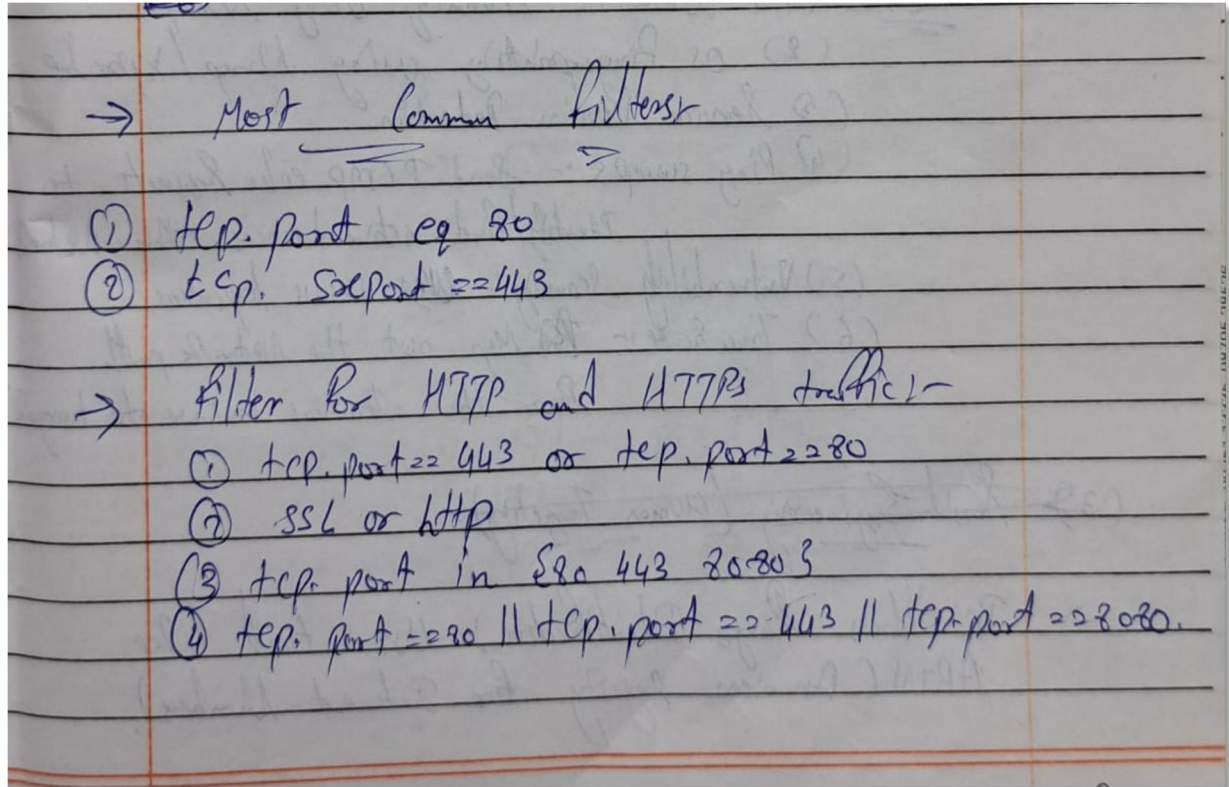 → Most Common filters:
① tcp.port eq 80
② tcp.srcport == 443
→ filter for HTTP and HTTPs traffic:-
① tcp.port == 443 or tcp.port == 80
② SSL or http
③ tcp.port in {80 443 8080}
④ tcp.port == 80 || tcp.port == 443 || tcp.port == 8080.